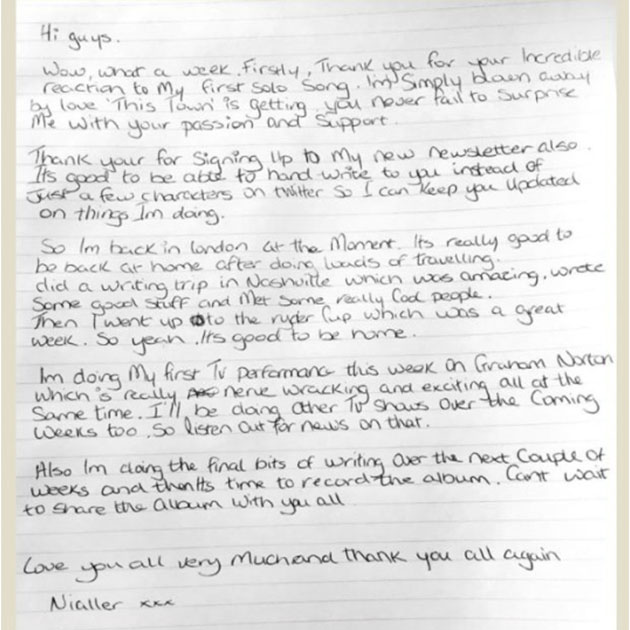 Hi guys.
Wow, what a week. Firstly, Thank you for your Incredible
reaction to My first solo Song. Im Simply blown away
by love 'This Town' is getting. you never fail to Surprise
Me with your passion and Support.
Thank your for Signing Up to My new newsletter also.
Its good to be able to hand write to you instead of
Just a few characters on twitter So I can keep you Updated
on things Im doing.
So Im back in london at the Moment. Its really good to
be back at home after doing loads of travelling.
did a writing trip in Nashville which was amazing, wrote
Some good Stuff and Met Some really Cool people.
Then I went up to the ryder Cup which was a great
week. So yeah. Its good to be home.
Im doing My first Tv performance this week On Graham Norton
which is really nerve wracking and exciting all at the
Same time. I'll be doing Other Tv Shows Over the Coming
weeks too. So listen Out for news on that.
Also Im doing the final bits of writing Over the next Couple Of
weeks and then Its time to record the album. Cant wait
to Share the Album with you all
Love you all very Much and thank you all again
Nialler xxx